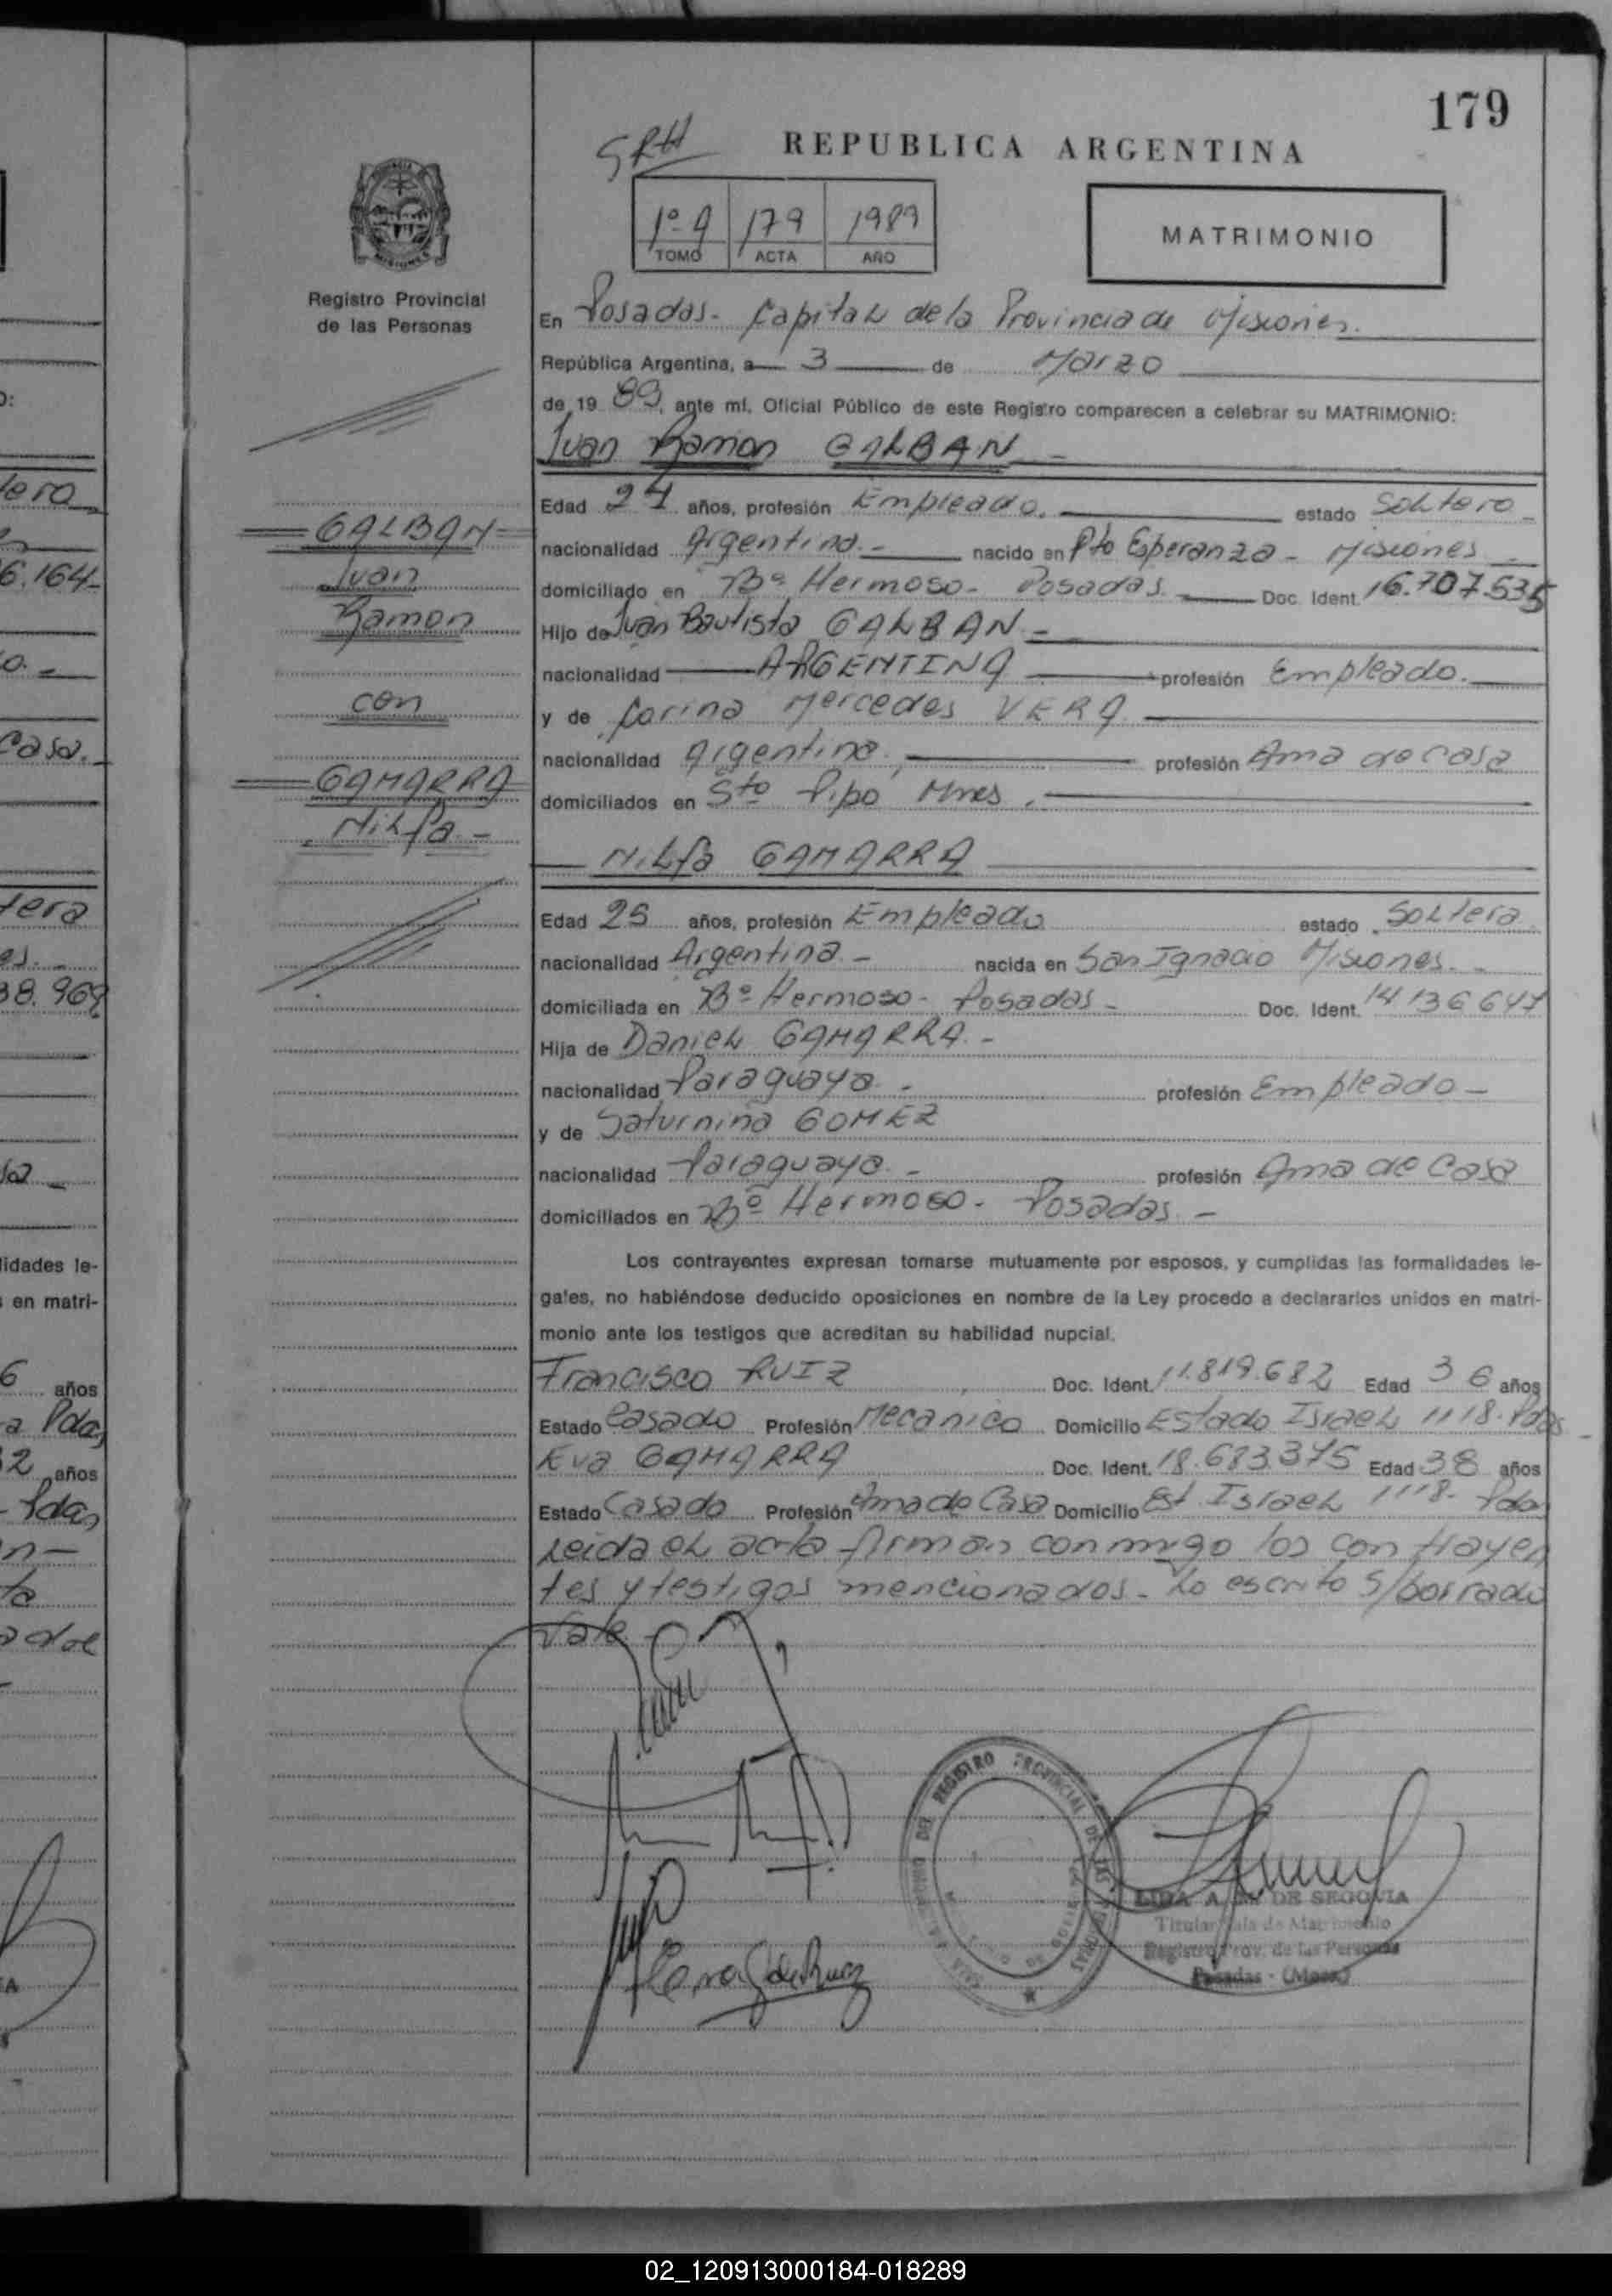 179
SRH
REPUBLICA ARGENTINA
1º A 179 1989
TOMO ACTA AÑO
MATRIMONIO
Registro Provincial
de las Personas
En Posadas - Capital de la Provincia de Misiones.
República Argentina, a 3 de Marzo
de 19 89, ante mí, Oficial Público de este Registro comparecen a celebrar su MATRIMONIO:
Juan Ramon GALBAN -
Edad 24 años, profesión Empleado. estado Soltero -
nacionalidad Argentina - nacido en Pto Esperanza - Misiones -
domiciliado en Bº Hermoso - Posadas. Doc. Ident. 16.707.535
Hijo de Juan Bautista GALBAN -
nacionalidad ARGENTINA profesión Empleado.
y de Carina Mercedes VERA
nacionalidad Argentina. profesión Ama de Casa
domiciliados en Sto Pipo Mnes.
GALBAN
Juan
Ramon
con
GAMARRA
Nilfa -
Nilfa GAMARRA
Edad 25 años, profesión Empleada estado Soltera
nacionalidad Argentina - nacida en San Ignacio Misiones. -
domiciliada en Bº Hermoso - Posadas - Doc. Ident. 14 136 647
Hija de Daniel GAMARRA. -
nacionalidad Paraguaya - profesión Empleado -
y de Saturnina GOMEZ
nacionalidad Paraguaya - profesión Ama de Casa
domiciliados en Bº Hermoso - Posadas -
Los contrayentes expresan tomarse mutuamente por esposos, y cumplidas las formalidades le-
gales, no habiéndose deducido oposiciones en nombre de la Ley procedo a declararlos unidos en matri-
monio ante los testigos que acreditan su habilidad nupcial.
Francisco RUIZ Doc. Ident. 11.819.682 Edad 36 años
Estado Casado Profesión Mecanico Domicilio Estado Israel 1118. Pdas -
Eva GAMARRA Doc. Ident. 18.683.375 Edad 38 años
Estado Casada Profesión Ama de Casa Domicilio Est. Israel 1118 - Pdas
Leida el acta firman conmigo los contrayen
tes y testigos mencionados - Lo escrito s/borrado
Vale -
DEL REGISTRO PROVINCIAL DE LAS PERSONAS
LIDA A. DE SEGOVIA
Titular Sala de Matrimonio
Registro Prov. de las Personas
Posadas - (Mnes.)
tera
6.164-
o. -
casa.
tera
es. -
38.969
sa -
lidades le-
en matri-
6 años
a Pdas
32 años
- Pdas
n -
ta
02_120913000184-018289